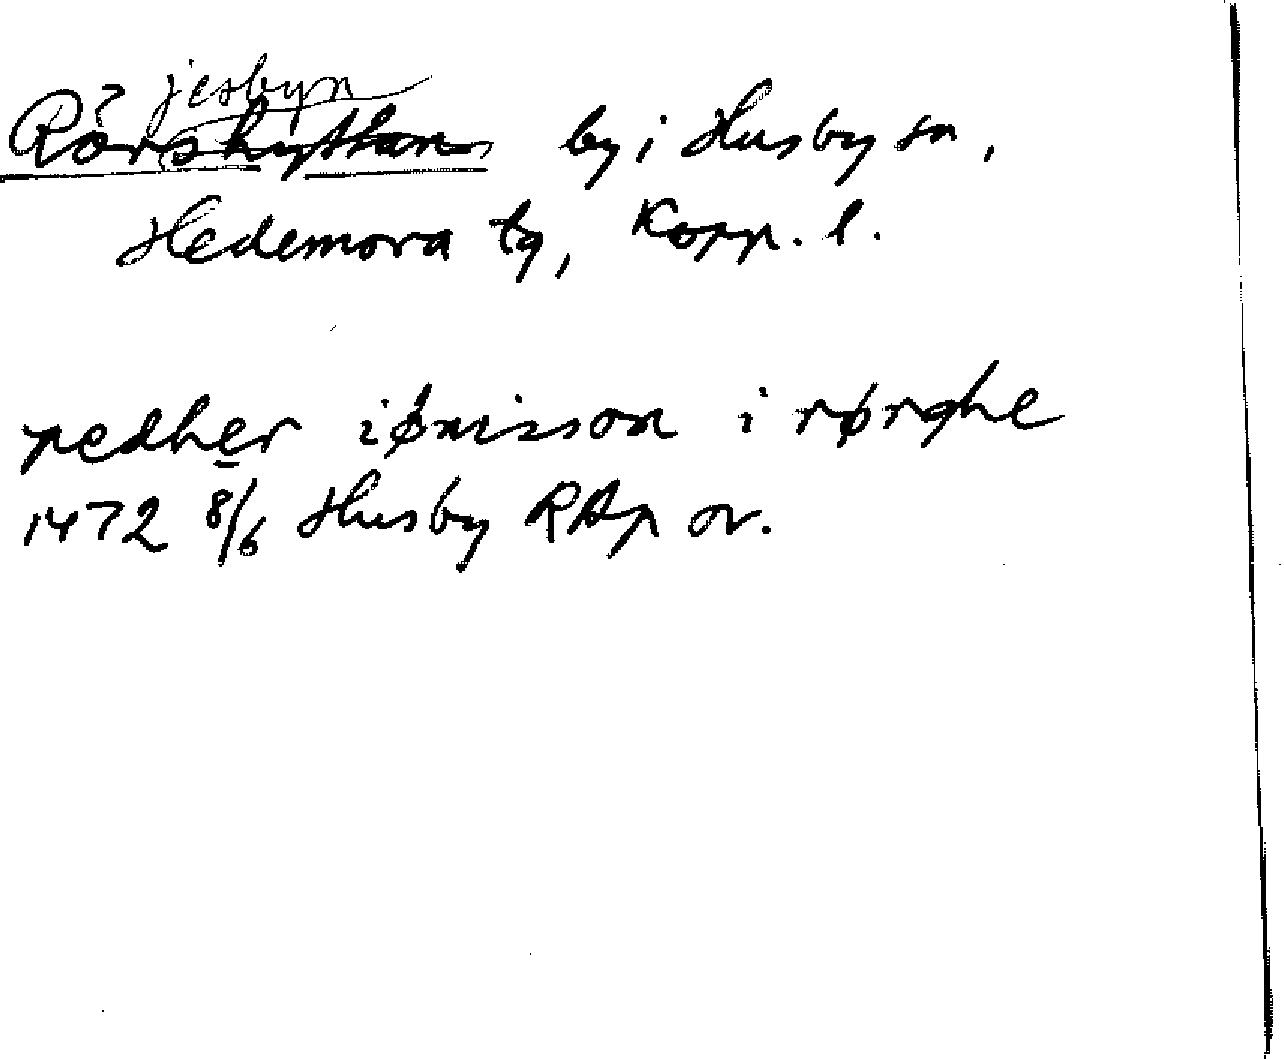 jesbyn
Rörshyttan by i Husby sn,
Hedemora tg, Kopp. l.
pedher iønisson i rørghe
1472 8/6 Husby RAp or.